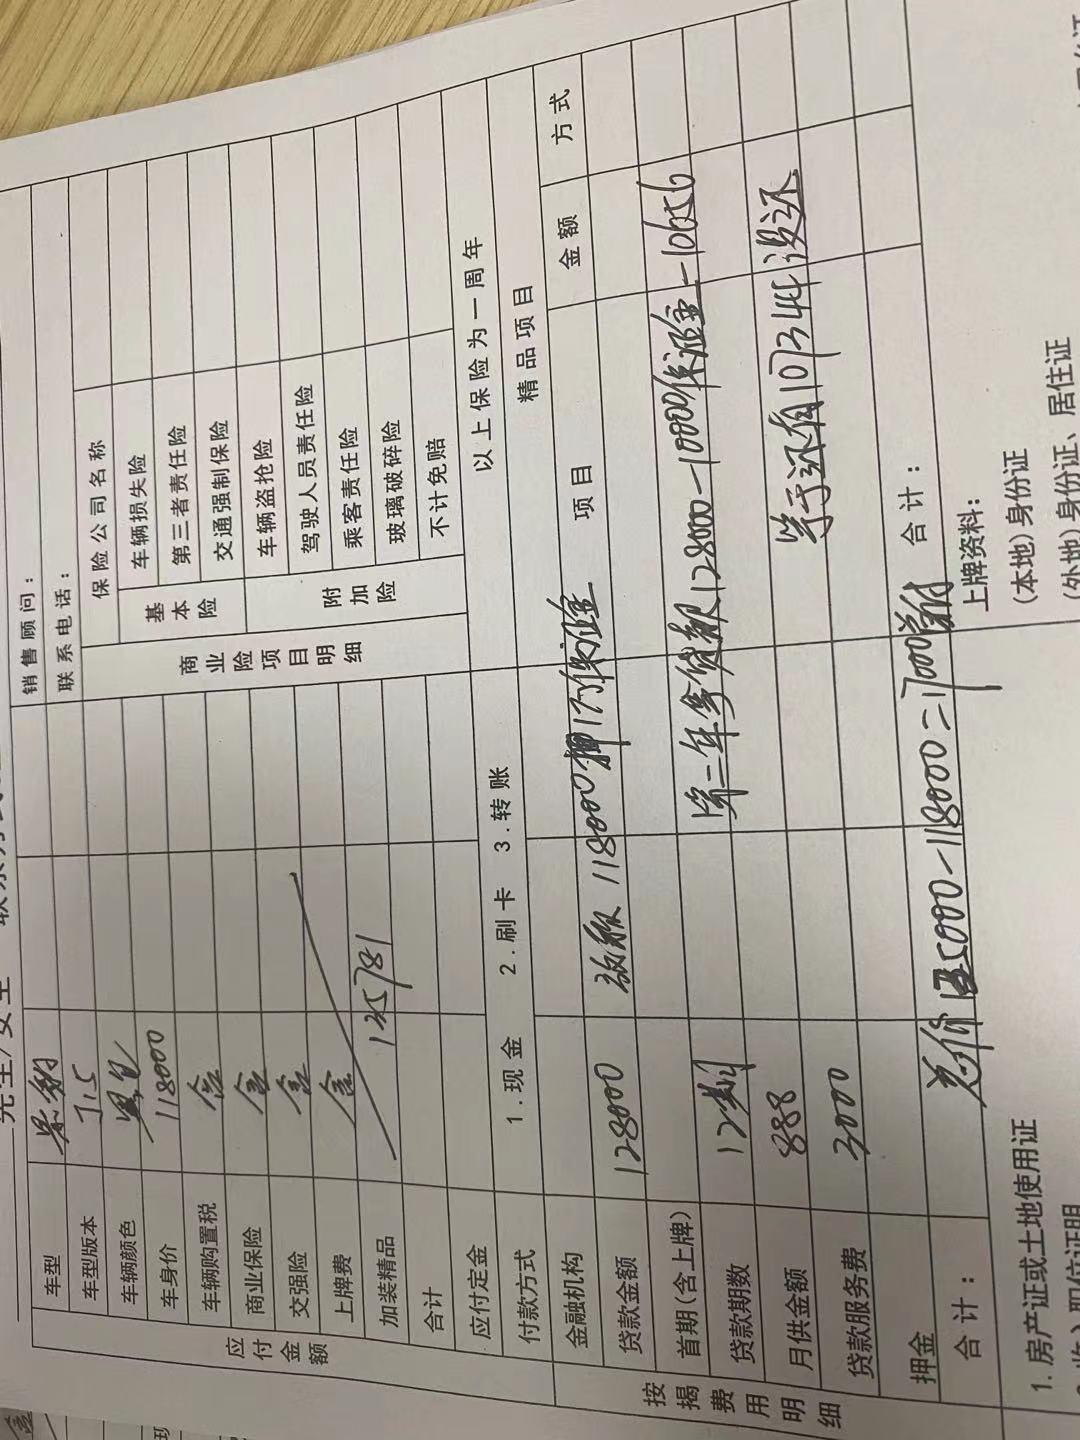 先生/女士
车型
车型版本 1.5
车辆颜色 黑色
车身价 118000
车辆购置税 含
商业保险 含
交强险 含
上牌费 含
加装精品
125781
合计
应付定金
应付金额
付款方式 1.现金 2.刷卡 3.转账
销售顾问:
联系电话:
商业险项目明细
保险公司名称
基本险
车辆损失险
第三者责任险
交通强制保险
附加险
车辆盗抢险
驾驶人员责任险
乘客责任险
玻璃破碎险
不计免赔
以上保险为一周年
精品项目
项目 金额 方式
按揭费用明细
金融机构
贷款金额 128000 放款118000押1万保证金
首期(含上牌)
贷款期数 12期
月供金额 888
贷款服务费 3000
押金
合计:
第二年等贷款128000-10000保证金-10656
等于还有107344没还
合计:
总价135000-118000=17000首付
上牌资料:
(本地)身份证
(外地)身份证、居住证
1.房产证或土地使用证